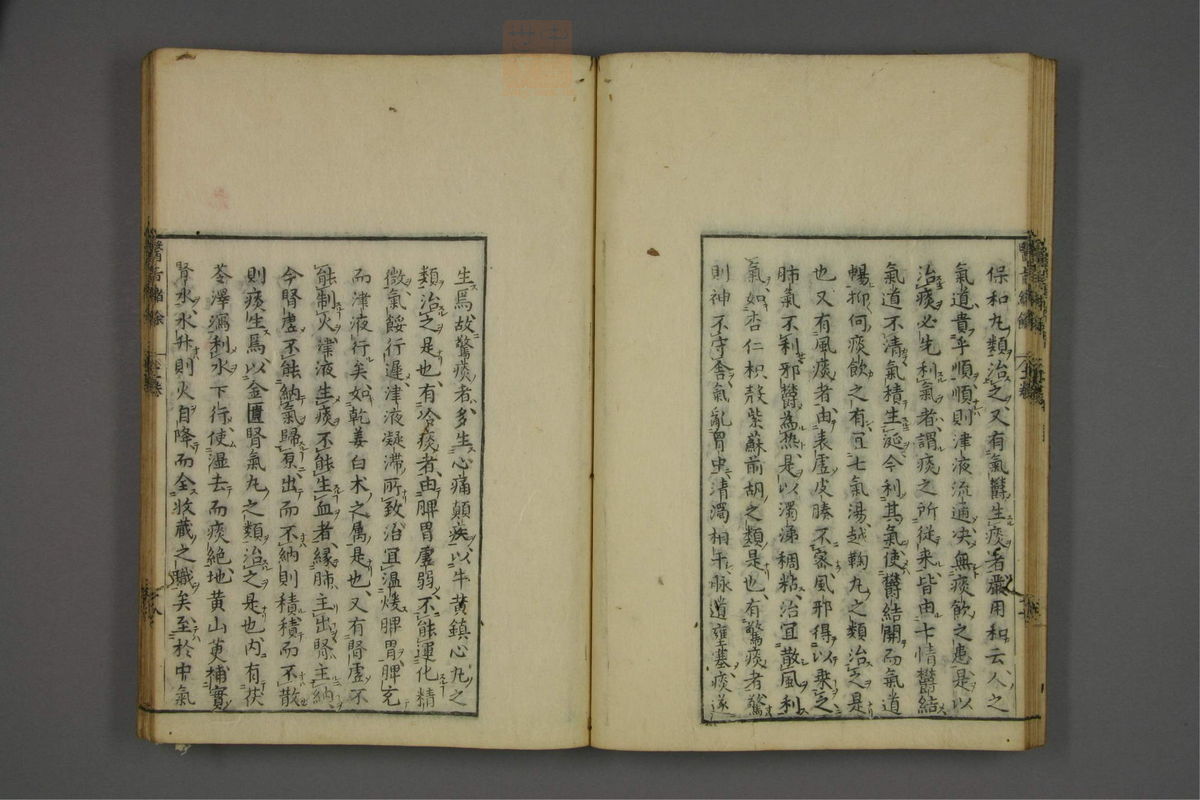 保和丸類治之又有氣欝生痰者嚴用和云人之
氣道貴乎順順則津液流通决無痰飲之患是以
治痰必先利氣者謂痰之所從来皆由七情欝結
氣道不清氣積生涎今利其氣使欝結開而氣道
暢抑何痰飲之有宜七氣湯越鞠丸之類治之是
也又有風痰者由表虚皮腠不密風邪得以乘之
肺氣不利邪欝為热是以濁涕稠粘治宜散風利
氣如杏仁枳殻紫蘇前胡之類是也有驚痰者驚
則神不守舍氣亂胃虫清濁相干脉道壅塞痰遂
生焉故驚痰者多生心痛顛疾以牛黄鎮心丸之
類治之是也有冷痰者由脾胃虚弱不能運化精
微氣餒行遲津液凝滞所致治宜温煖脾胃脾充
而津液行矣如乾姜白木之属是也又有腎虚不
能制火津液生痰不能生血者縁肺主出腎主納
今腎虚不能納氣歸原出而不納則積積而不散
則痰生焉以金匱腎氣丸之類治之是也内有茯
苓澤瀉利水下行使湿去而痰絶地黄山萸補實
腎水水升則火自降而全收藏之職矣至於中氣